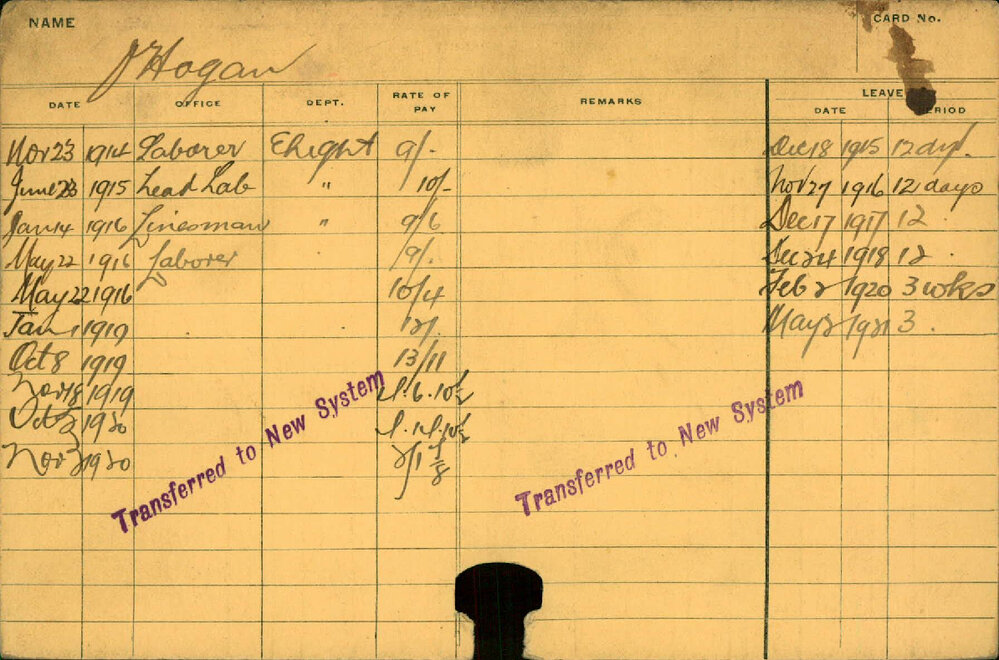 NAME
CARD No.
J Hogan
DATE OFFICE DEPT. RATE OF PAY REMARKS LEAVE DATE PERIOD
Nov 23 1914 Laborer Elright 9/- Dec 18 1915 12 dys.
June 28 1915 Lead Lab " 10/- Nov 27 1916 12 days
Jan 14 1916 Linesman " 9/6 Dec 17 1917 12
May 22 1916 Laborer 9/- Dec 24 1918 12
May 22 1916 10/4 Feb 2 1920 3 wks
Jan 1 1919 12/. May 2 1921 3.
Oct 8 1919 13/11
Nov 18 1919 .6.10½
Oct 1920 .10½
Nov 1920 2/1 ⅞
Transferred to New System
Transferred to New System